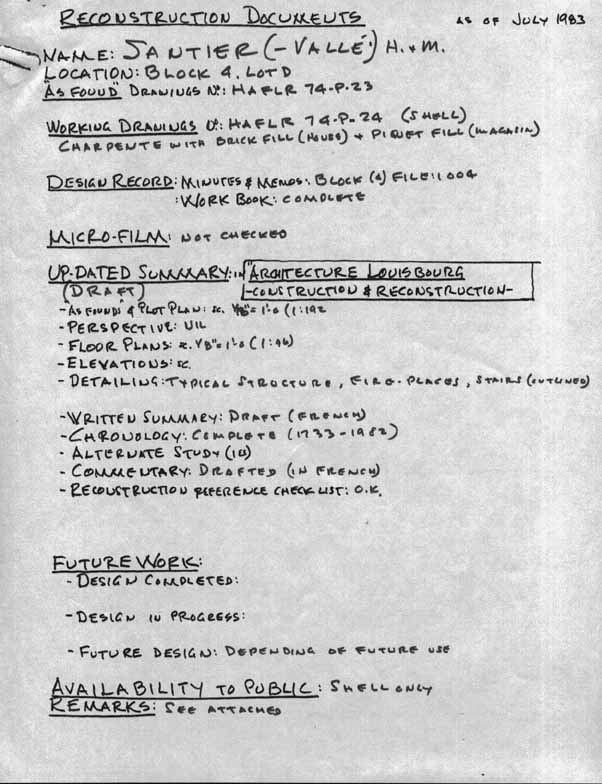 RECONSTRUCTION DOCUMENTS AS OF JULY 1983
NAME: SANTIER (-VALLÉ) H. & M.
LOCATION: BLOCK 4. LOT D
"AS FOUND" DRAWINGS Nº: HAFLR 74-P-23
WORKING DRAWINGS Nº: HAFLR 74-P-24 (SHELL)
CHARPENTE WITH BRICK FILL (HOUSE) & PIQUET FILL (MAGASIN)
DESIGN RECORD: MINUTES & MEMOS: BLOCK (4) FILE: 1004
: WORK BOOK: COMPLETE
MICRO-FILM: NOT CHECKED
UP-DATED SUMMARY: in "ARCHITECTURE LOUISBOURG
(DRAFT) -CONSTRUCTION & RECONSTRUCTION-
- AS FOUNDS & PLOT PLAN: sc. 1/8"=1'-0 (1:192
- PERSPECTIVE: NIL
- FLOOR PLANS: sc. 1/8"=1'-0 (1:96)
- ELEVATIONS: sc.
- DETAILING: TYPICAL STRUCTURE, FIRE-PLACES, STAIRS (OUTLINED)
- WRITTEN SUMMARY: DRAFT (FRENCH)
- CHRONOLOGY: COMPLETE (1733-1982)
- ALTERNATE STUDY (IN)
- COMMENTARY: DRAFTED (IN FRENCH)
- RECONSTRUCTION REFERENCE CHECK LIST: O.K.
FUTURE WORK:
- DESIGN COMPLETED:
- DESIGN IN PROGRESS:
- FUTURE DESIGN: DEPENDING OF FUTURE USE
AVAILABILITY TO PUBLIC: SHELL ONLY
REMARKS: SEE ATTACHED